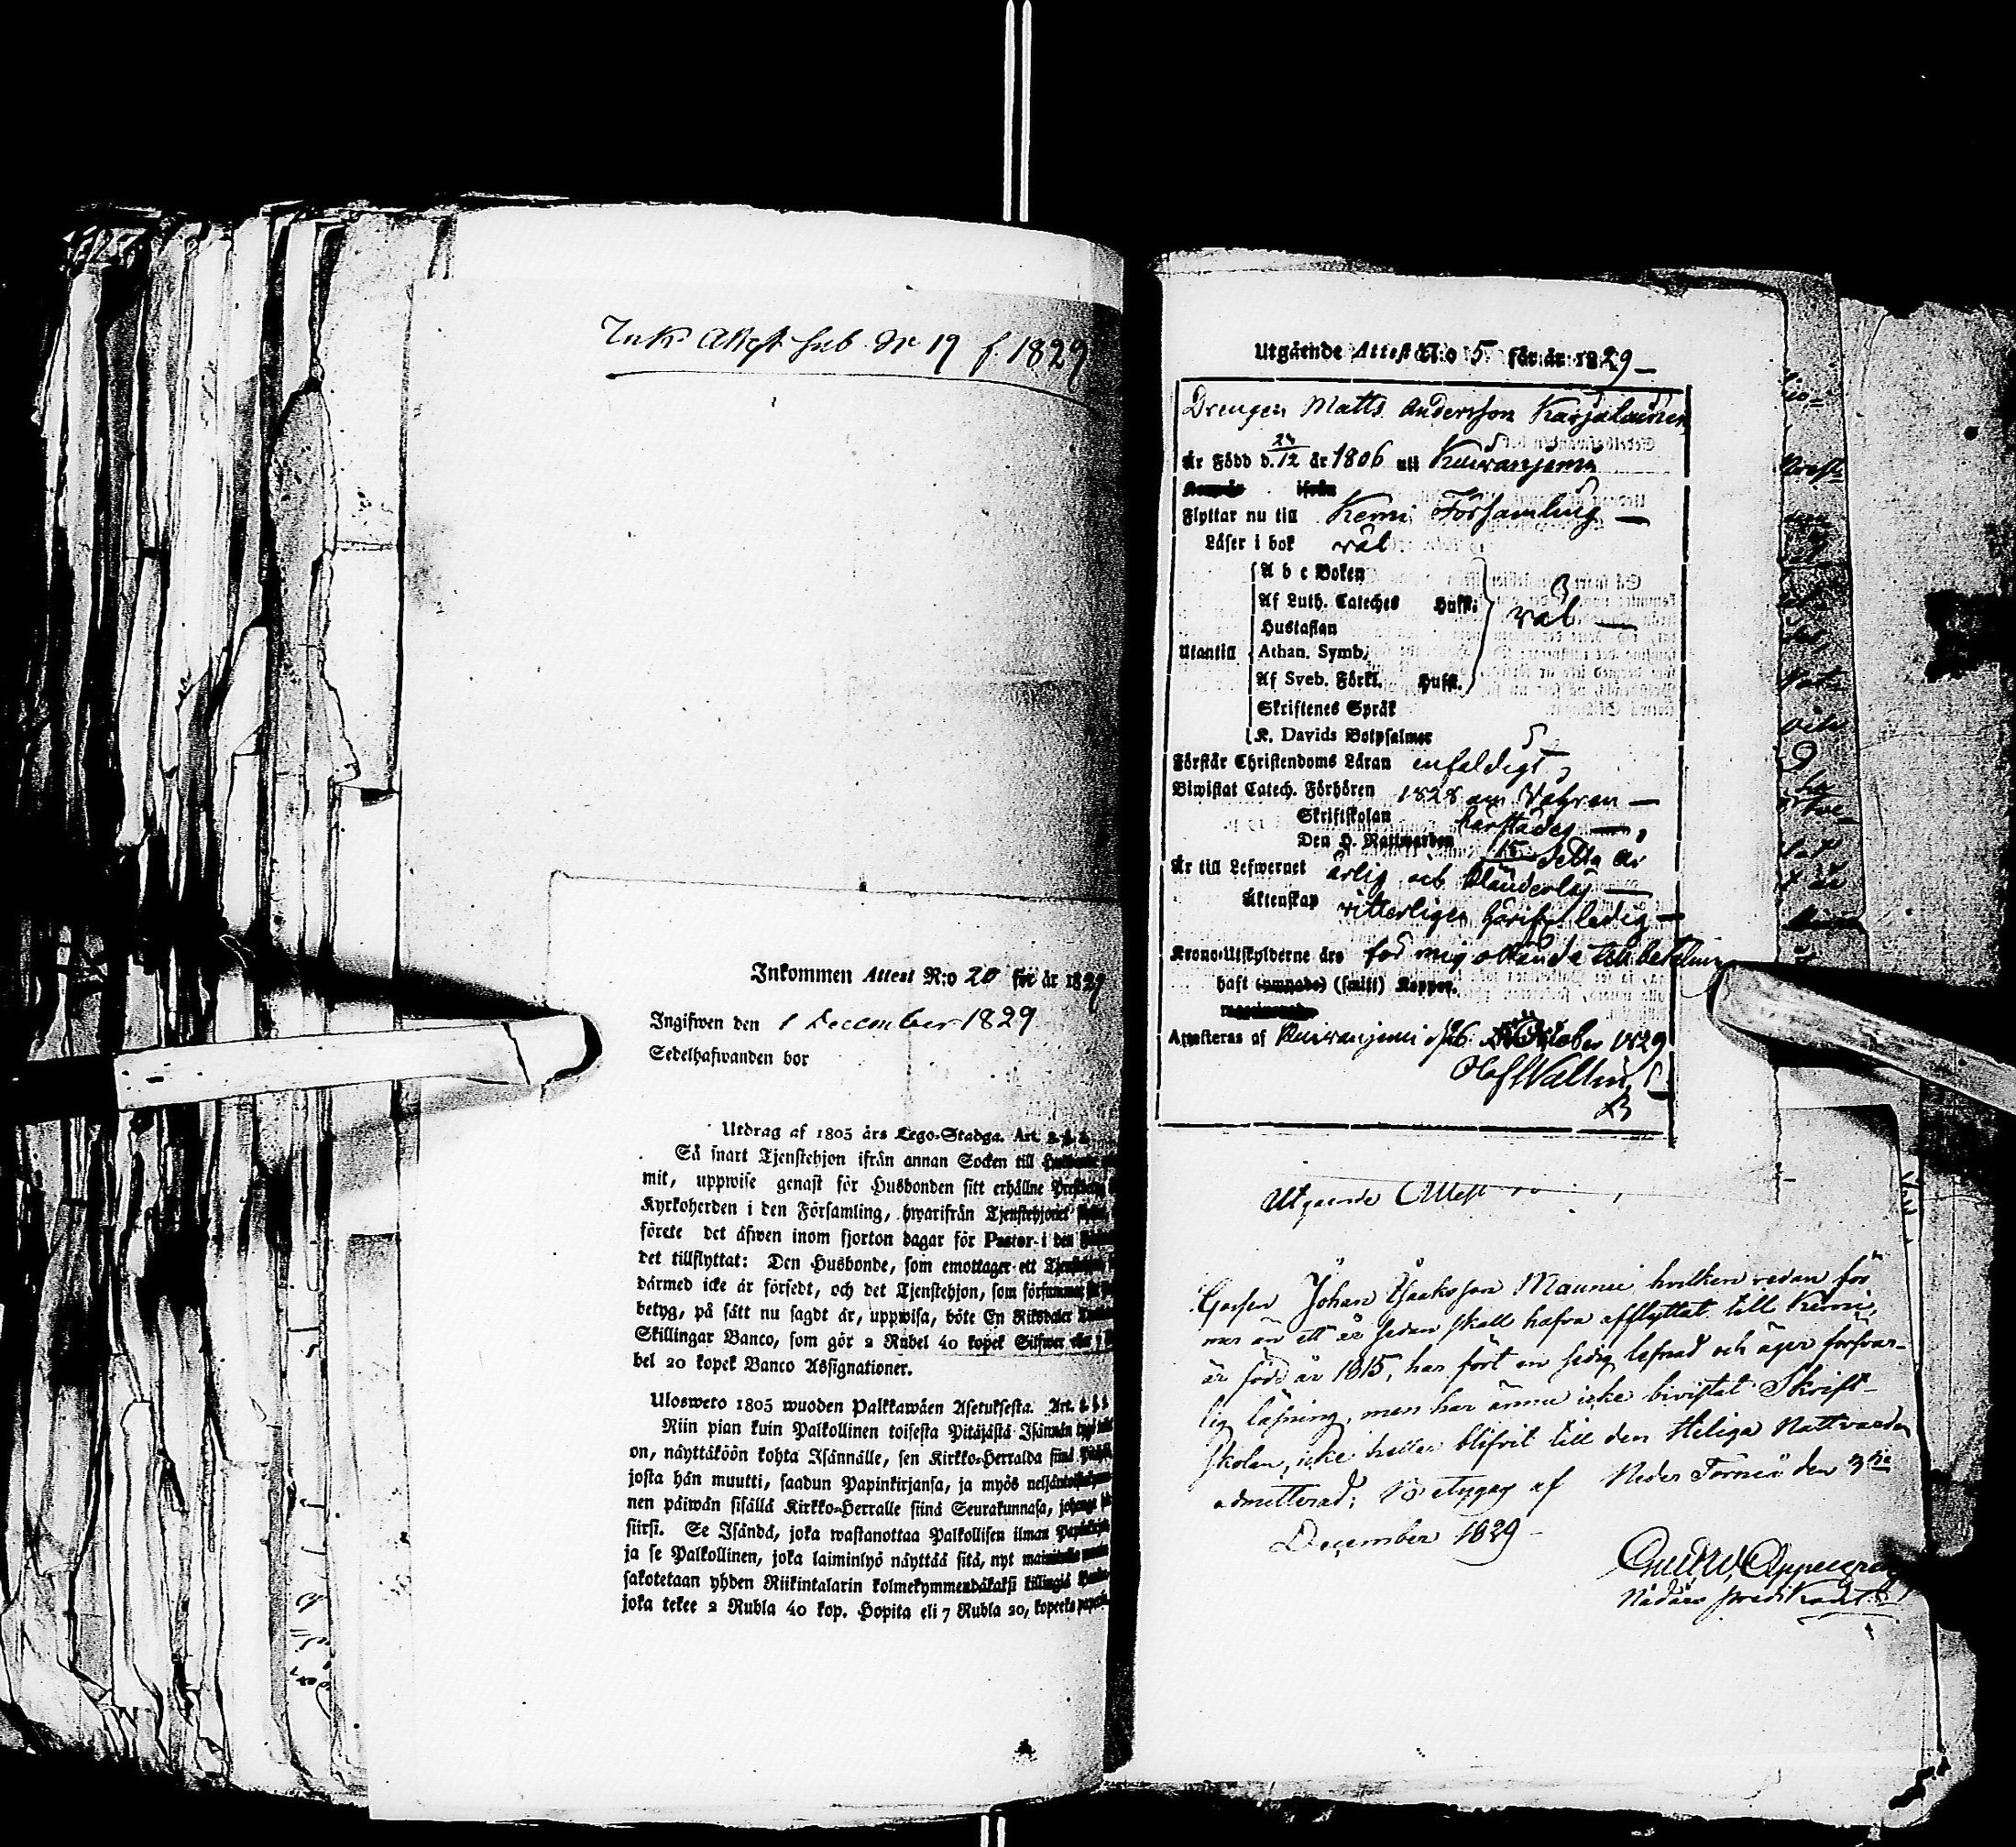 Ink Attest sub Nr 19 f. 1829
Inkommen Attest N:o 20 för år 1829
Ingifwen den 1 December 1829
Sedelhafwanden bor
Utdrag af 1805 års Lego-Stadga. Art. 2. §. 2.
Så snart Tjenstehjon ifrån annan Socken till
mit, uppwise genast för Husbonden sitt erhållne
Kyrkoherden i den Församling, hwarifrån Tjenstehjonet
förete det äfwen inom fjorton dagar för Pastor i den
det tillflyttat: Den Husbonde, som emottager ett
därmed icke är försedt, och det Tjenstehjon, som försummar
betyg, på sätt nu sagdt är, uppwisa, böte En Riksdaler
Skillingar Banco, som gör 2 Rubel 40 kopek Silfwer eller 7
bel 20 kopek Banco Assignationer.
Ulosweto 1805 wuoden Palkkawäen Asetuksesta. Art.
Niin pian kuin Palkollinen toisesta Pitäjästä Isännän
on, näyttäköön kohta Isännälle, sen Kirkko-Herralda siinä
josta hän muutti, saadun Papinkirjansa, ja myös
nen päiwän sisällä Kirkko-Herralle siinä Seurakunnasa,
siirsi. Se Isändä, joka wastanottaa Palkollisen ilman
ja se Palkollinen, joka laiminlyö näyttää sitä, nyt
sakotetaan yhden Riikintalarin kolmekymmendäkaksi killingiä
joka tekee 2 Rubla 40 kop. Hopita eli 7 Rubla 20, kopeeka
Utgående Attest N:o 5 för år 1829
Drengen Matts Andersson Karjalainen
Är Född d. 24/12 år 1806 uti Kuivaniemi
ifrån
Flyttar nu till Kemi Församling
Läser i bok väl
A b c Boken
Af Luth. Cateches Hufst.
väl
Hustaflan
Utantill Athan. Symb.
Af Sveb. Förkl. Hufst.
Skriftenes Språk
K. Davids Botpsalmer
Förstår Christendoms Läran enfaldigt
Biwistat Catech. Förhören 1828 om Våhren
Skriftskolan härstädes
Den H. Nattwarden detta år
Är till Lefwernet ärlig och
Äktenskap vitterligen härifr. ledig
Krono-Utskylderne äro för mig
haft (ympade) (smitt) Koppor.
Attesteras af Kuivaniemi d. 26 October 1829
Olof Wallin
Utgående Attest
Gossen Johan Isaksson Maunu hvilken redan för
mer än ett år sedan skall hafva afflyttat till Kemi,
är född år 1815, har fört en sedig lefnad och äger försvar-
lig läsning, men har ännu icke bivistat Skrift-
skolan, icke heller blifvit till den Heliga Nattvarden
admitterad; Betygas af Neder Torneå den 3ne
December 1829
Nådårs predikant